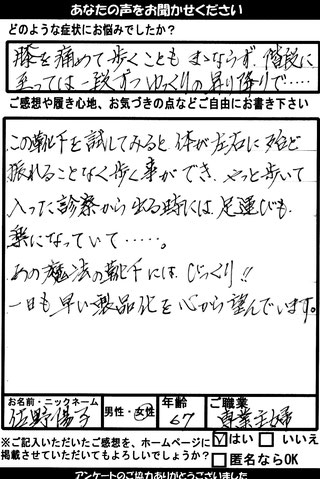 あなたの声をお聞かせください
どのような症状にお悩みでしたか?
膝を痛めて歩くこともままならず、階段に
至っては一段ずつゆっくりの昇り降りで‥‥
ご感想や履き心地、お気づきの点などご自由にお書き下さい
この靴下を試してみると体が左右に殆ど
振れることなく歩く事ができ、やっと歩いて
入った診察から出る時には足運びも
楽になっていて‥‥‥。
あの魔法の靴下には、びっくり!!
一日も早い製品化を心から望んでいます。
お名前・ニックネーム
佐野陽子
男性・女性
年齢
67
ご職業
専業主婦
※ご記入いただいたご感想を、ホームページに
掲載させていただいてもよろしいでしょうか?
はい いいえ
匿名ならOK
アンケートのご協力ありがとうございました